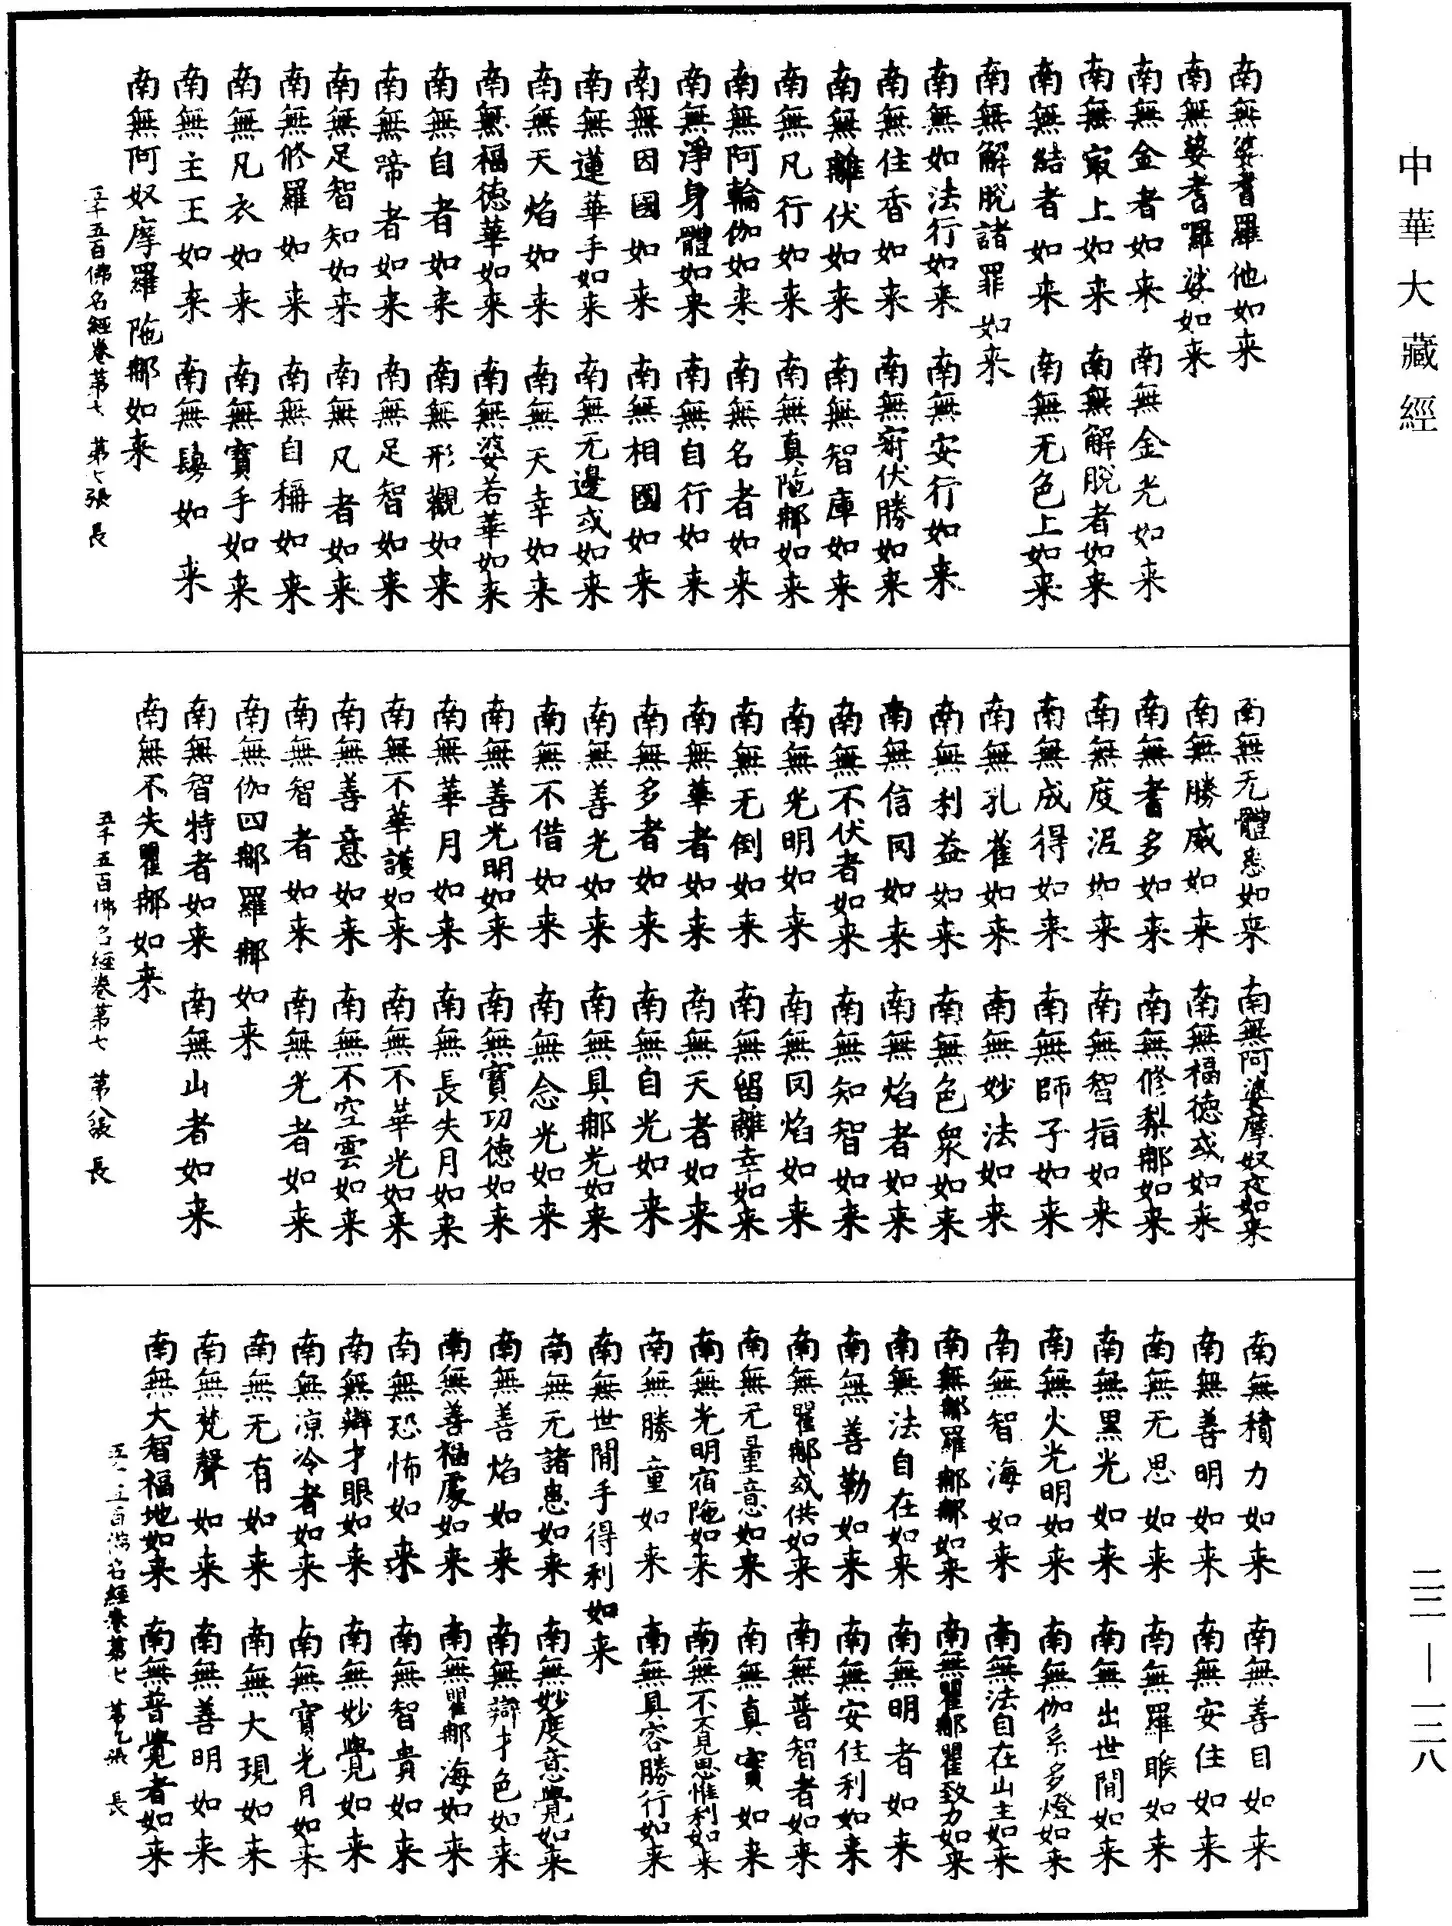 中華大藏經
南無婆耆羅他如来
南無婆耆囉娑如来
南無金者如来 南無金光如来
南無寂上如来 南無解脱者如来
南無結者如来 南無无色上如来
南無解脱諸罪如来
南無如法行如来 南無安行如来
南無住香如来 南無伏勝如来
南無離伏如来 南無智庫如来
南無凡行如来 南無真陁那如来
南無阿輪伽如来 南無名者如来
南無淨身體如来 南無自行如来
南無因國如来 南無相國如来
南無蓮華手如来 南無无邊或如来
南無天焰如来 南無天幸如来
南無福徳華如来 南無婆若華如来
南無自者如来 南無形觀如来
南無帝者如来 南無足智如来
南無足智知如来 南無凡者如来
南無修羅如来 南無自稱如来
南無凡衣如来 南無寶手如来
南無主王如来 南無如来
南無阿奴摩羅陁那如来
五千五百佛名經卷第七 第七張 長
南無无體如来 南無阿婆摩奴如来
南無勝威如来 南無福德或如来
南無耆多如来 南無修梨那如来
南無度泥如来 南無智指如来
南無成得如来 南無師子如来
南無孔雀如来 南無妙法如来
南無利益如来 南無色衆如来
南無信同如来 南無焰者如来
南無不伏者如来 南無知智如来
南無光明如来 南無同焰如来
南無无倒如来 南無留離幸如来
南無華者如来 南無天者如来
南無多者如来 南無自光如来
南無善光如来 南無具那光如来
南無不借如来 南無念光如来
南無善光明如来 南無寶功德如来
南無華月如来 南無長失月如来
南無不華護如来 南無不華光如来
南無善意如来 南無不空雲如来
南無智者如来 南無光者如来
南無伽四那羅那如来
南無智特者如来 南無山者如来
南無不失瞿那如来
五千五百佛名經卷第七 第八張 長
南無積力如来 南無善目如来
南無善明如来 南無安住如来
南無无思如来 南無羅睺如来
南無黑光如来 南無出世間如来
南無火光明如来 南無伽系多燈如来
南無智海如来 南無法自在山主如来
南無那羅那那如来 南無瞿那瞿致力如来
南無法自在如来 南無明者如来
南無善勒如来 南無安住利如来
南無瞿那或供如来 南無普智者如来
南無无量意如来 南無真實如来
南無光明宿陁如来 南無不不見思惟利如来
南無勝童如来 南無具容勝行如来
南無世間手得利如来
南無无諸患如来 南無妙度意覺如来
南無善焰如来 南無辯才色如来
南無善福處如来 南無瞿那海如来
南無恐怖如来 南無智貴如来
南無辯才眼如来 南無妙覺如来
南無凉冷者如来 南無寶光月如来
南無无有如来 南無大現如来
南無梵聲如来 南無善明如来
南無大智福地如来 南無普覺者如来
五千五百佛名經卷第七 第九張 長
二二—一二八